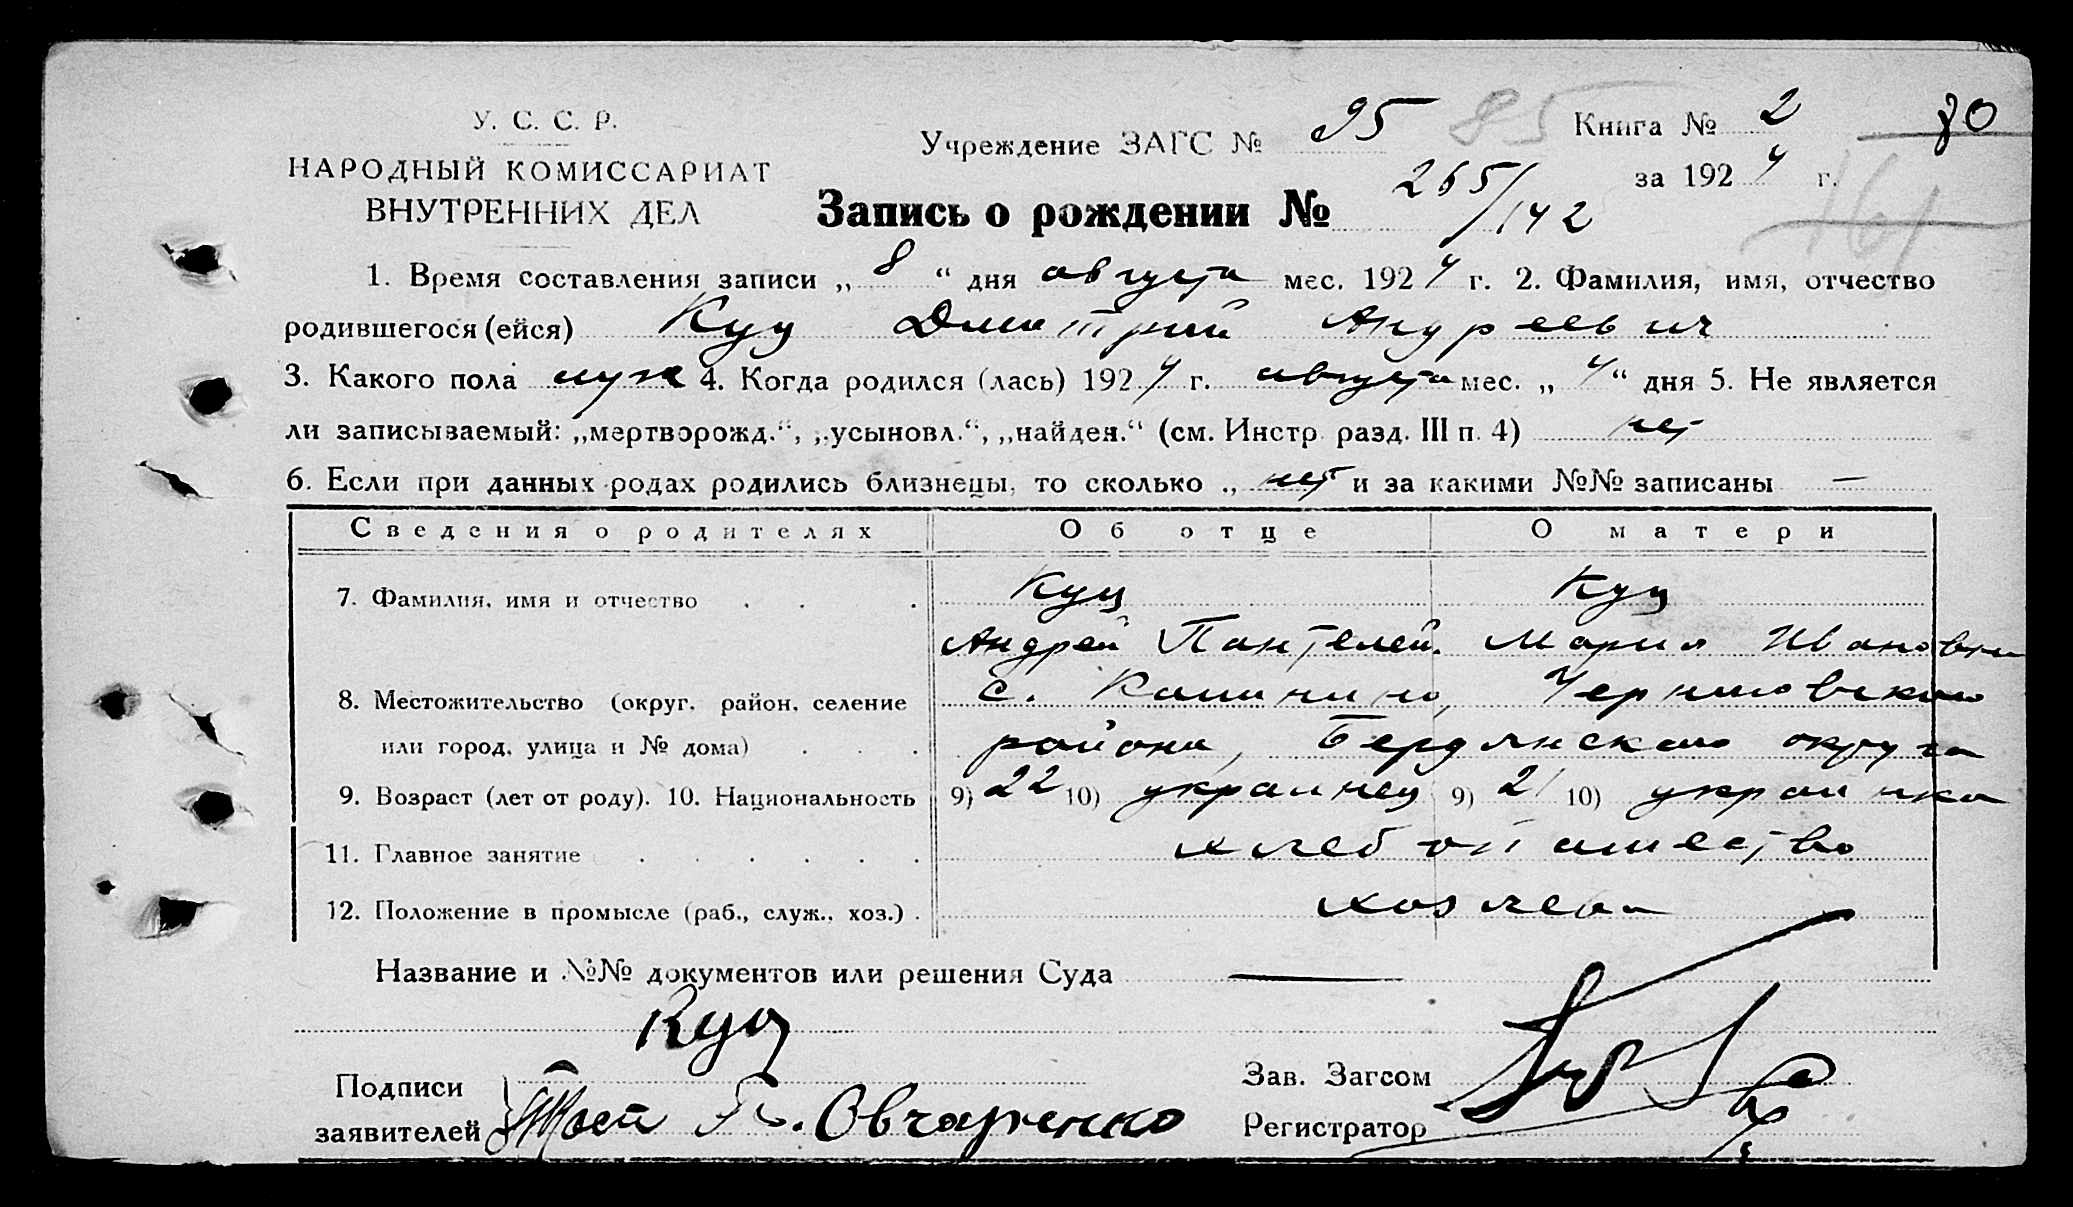 У. С. С. Р.
НАРОДНЫЙ КОМИССАРИАТ
ВНУТРЕННИХ ДЕЛ
Учреждение ЗАГС № 95 85
Книга № 2 80
за 1924 г.
161
Запись о рождении № 265/142
1. Время составления записи „ 8 “ дня августа мес. 1924 г. 2. Фамилия, имя, отчество
родившегося (ейся) Куц Дмитрий Андреевич
3. Какого пола муж 4. Когда родился (лась) 1924 г. августа мес. „ 4 “ дня 5. Не является
ли записываемый: „мертворожд.“, „усыновл.“, „найден.“ (см. Инстр. разд. III п. 4) нет
6. Если при данных родах родились близнецы, то сколько „ нет и за какими №№ записаны —
Сведения о родителях Об отце О матери
7. Фамилия, имя и отчество . . . Куц Куц
Андрей Пантелей. Мария Ивановна
8. Местожительство (округ, район, селение с. Калинино, Черниговского
или город, улица и № дома) . . . района, Бердянского округа
9. Возраст (лет от роду). 10. Национальность 9) 22 10) украинец 9) 21 10) украинка
11. Главное занятие . . . . . . хлебопашество
12. Положение в промысле (раб., служ., хоз.) . хозяева
Название и №№ документов или решения Суда —
Куц
Подписи
заявителей Овчаренко
Зав. Загсом
Регистратор